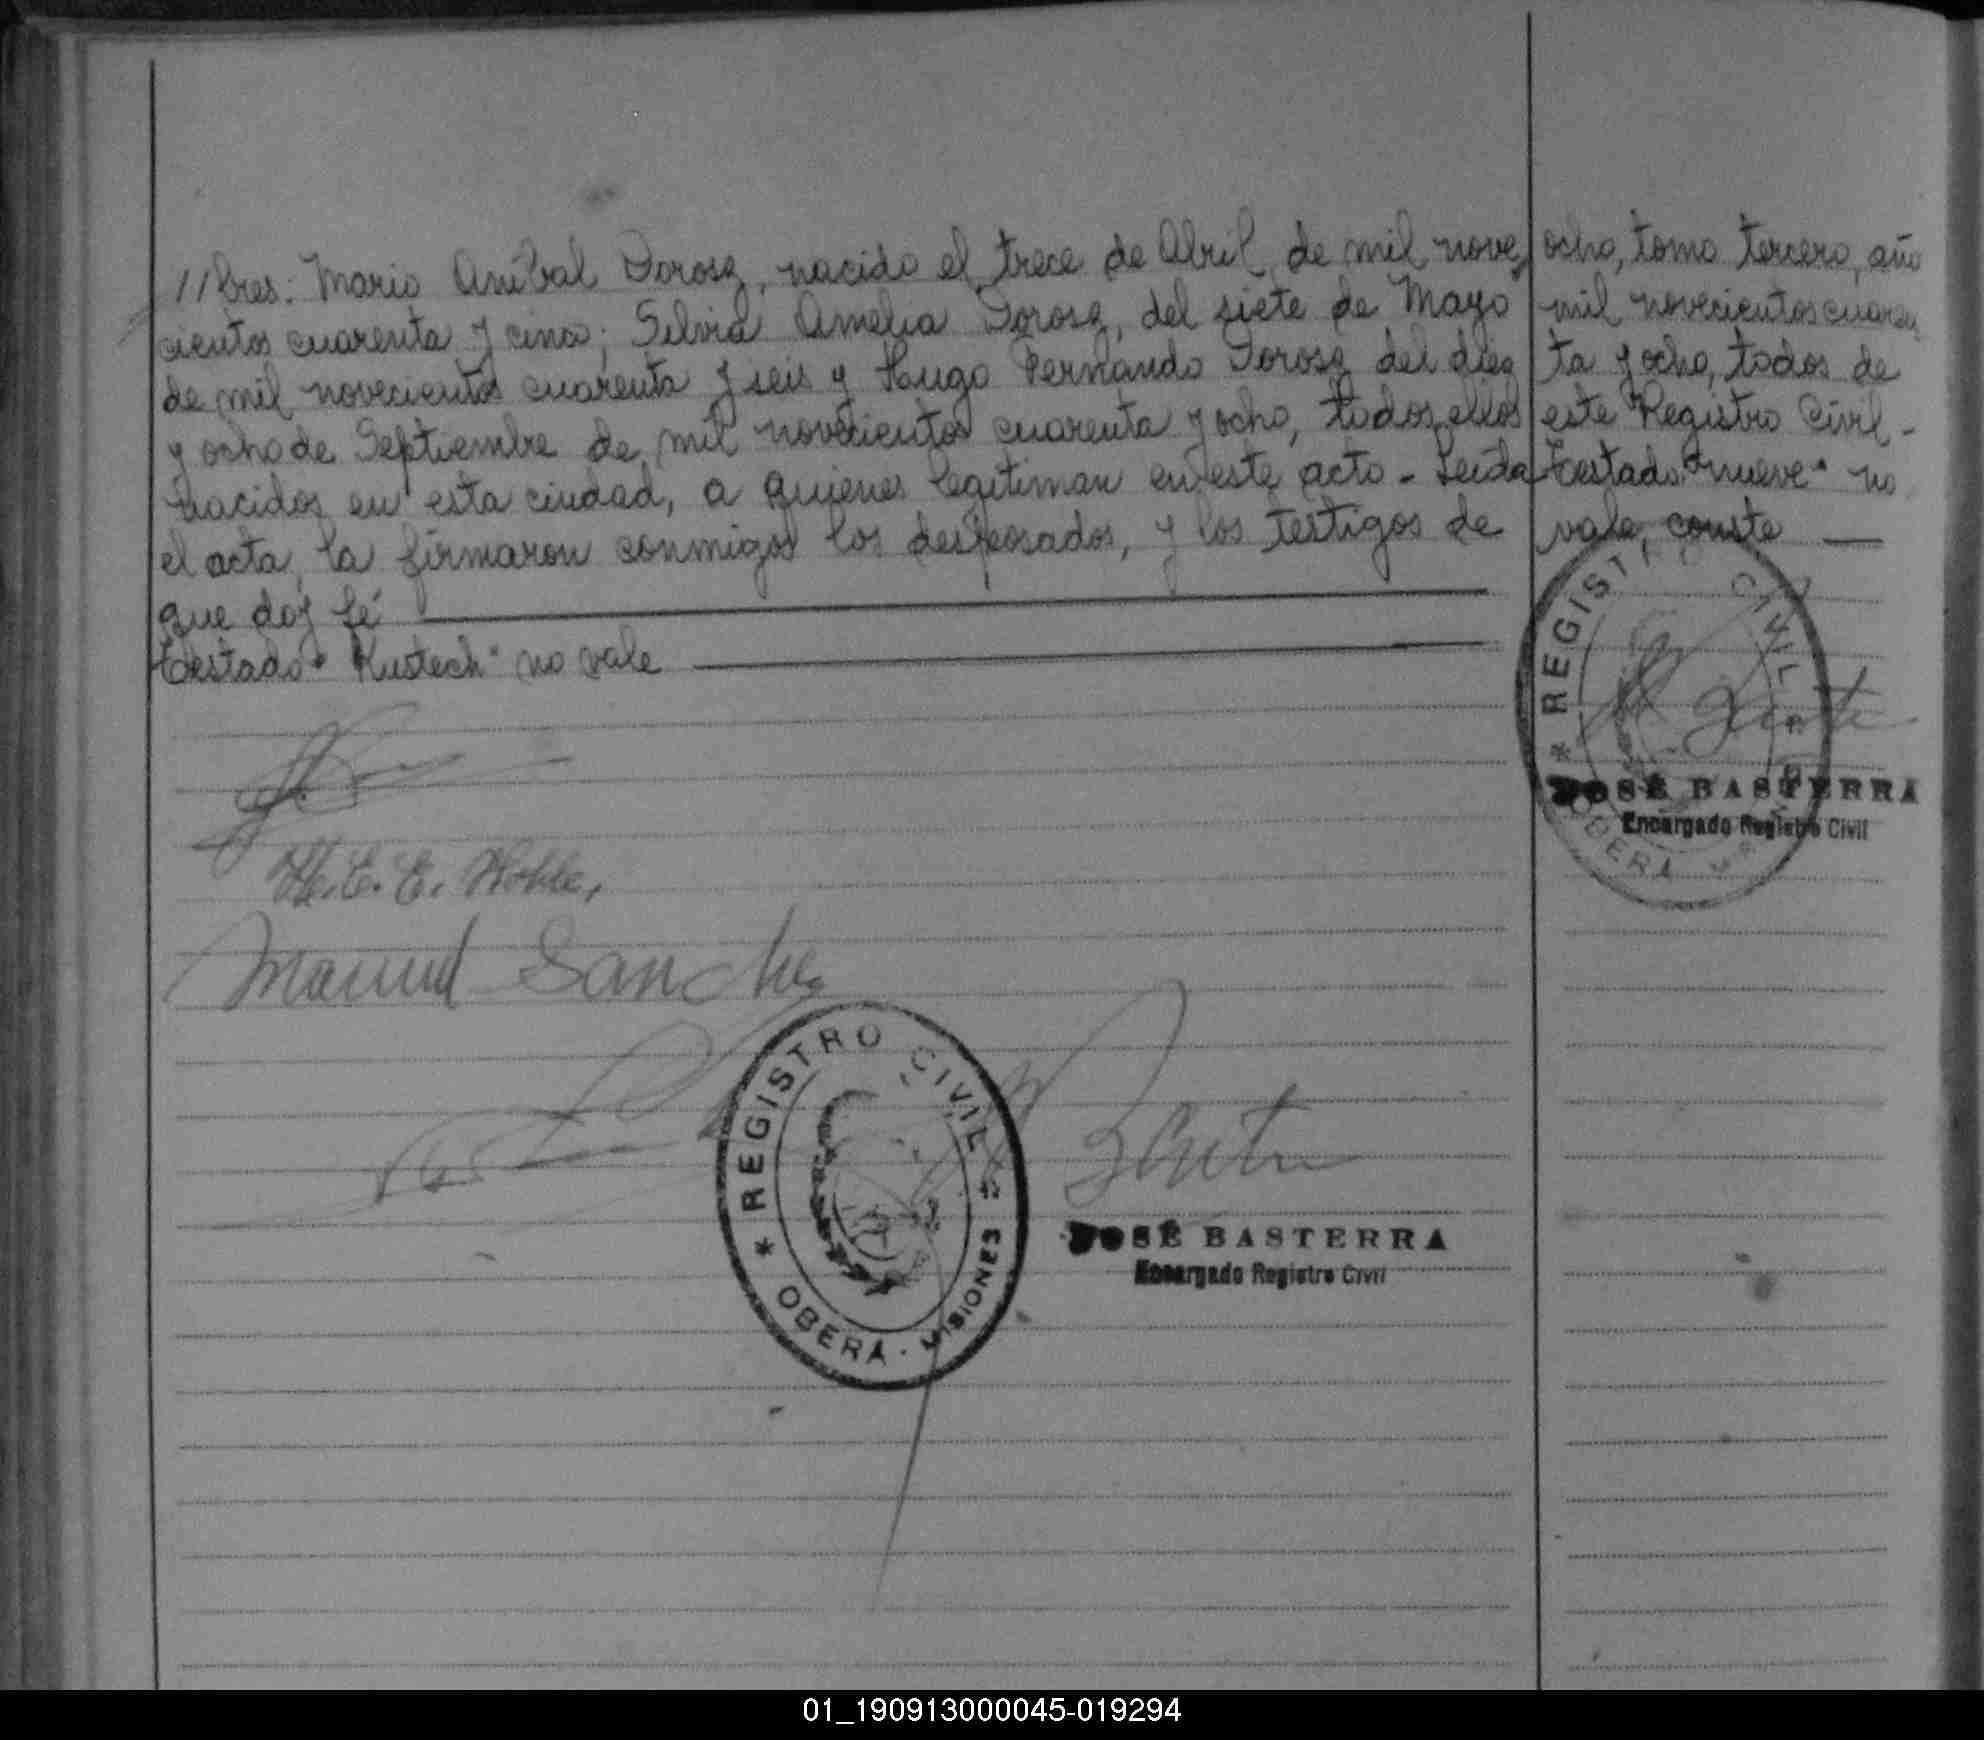 //bres: Mario Aníbal Dorosz, nacido el trece de Abril de mil nove
cientos cuarenta y cinco; Silvia Amelia Dorosz, del siete de Mayo
de mil novecientos cuarenta y seis y Hugo Fernando Dorosz del diez
y ocho de Septiembre de mil novecientos cuarenta y ocho, todos ellos
nacidos en esta ciudad, a quienes legitiman en este acto - Leida
el acta, la firmaron conmigo los desposados, y los testigos de
que doy fé
Testado "Kustech" no vale
H. E. E. Hohle,
Manuel Sanchez
REGISTRO CIVIL
* OBERA - MISIONES *
JOSÉ BASTERRA
Encargado Registro Civil
ocho, tomo tercero, año
mil novecientos cuaren
ta y ocho, todos de
este Registro Civil -
Testado "nueve" no
vale, conste
REGISTRO CIVIL
* OBERA
JOSÉ BASTERRA
Encargado Registro Civil
01_190913000045-019294